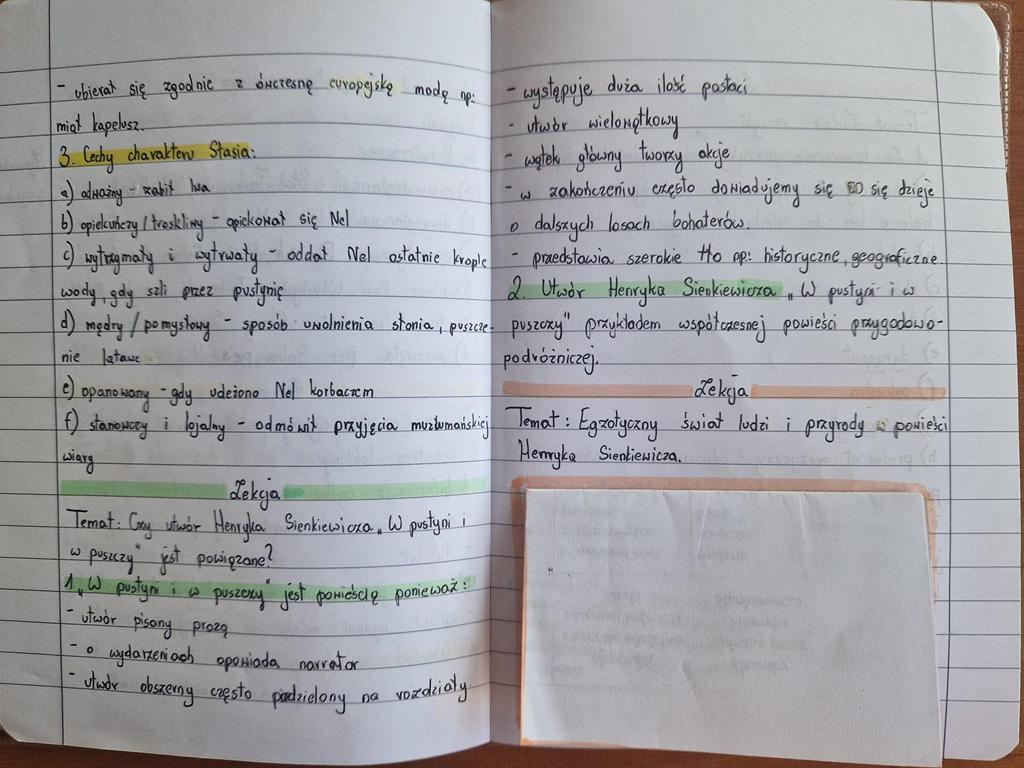 - ubierał się zgodnie z ówczesnę europejską modę np:
miał kapelusz.
3. Cechy charakteru Stasia:
a) odważny - zabił lwa
b) opiekuńczy / troskliwy - opiekował się Nel
c) wytrzymały i wytrwały - oddał Nel ostatnie krople
wody, gdy szli przez pustynię
d) mądry / pomysłowy - sposób uwolnienia słonia, puszcze-
nie latawc
e) opanowany - gdy udeżono Nel korbaczem
f) stanowczy i lojalny - odmówił przyjęcia muzłumańskiej
wiary
Lekcja
Temat: Czy utwór Henryka Sienkiewicza „W pustyni i
w puszczy" jest powiązane?
1. „W pustyni i w puszczy" jest powieścią ponieważ:
- utwór pisany prozą
- o wydarzeniach opowiada narrator
- utwór obszerny często podzielony na rozdziały
- występuje duża ilość postaci
- utwór wielowątkowy
- wątek główny tworzy akcje
- w zakończeniu często dowiadujemy się co się dzieje
o dalszych losach bohaterów.
- przedstawia szerokie tło np: historyczne, geograficzne.
2. Utwór Henryka Sienkiewicza „W pustyni i w
puszczy" przykładem współczesnej powieści przygodowo-
podróżniczej.
Lekcja
Temat: Egzotyczny świat ludzi i przyrody w powieści
Henryka Sienkiewicza.